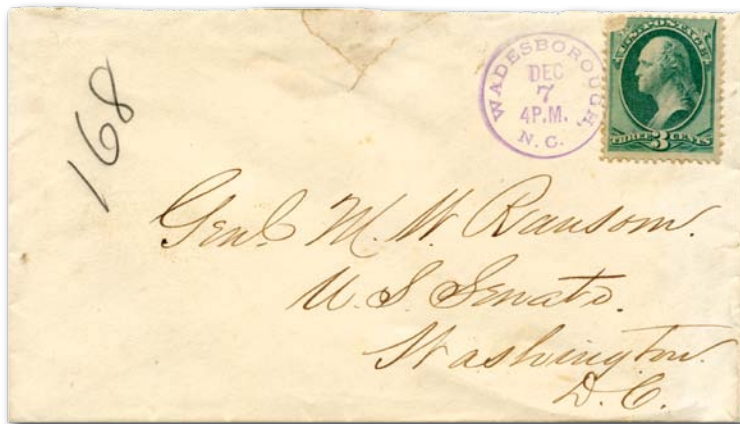 168
WADESBOROUGH,
DEC
7
4P.M.
N.C.
U.S. POSTAGE
THREE 3 CENTS
Genl. M. W. Ransom.
U. S. Senate.
Washington.
D. C.